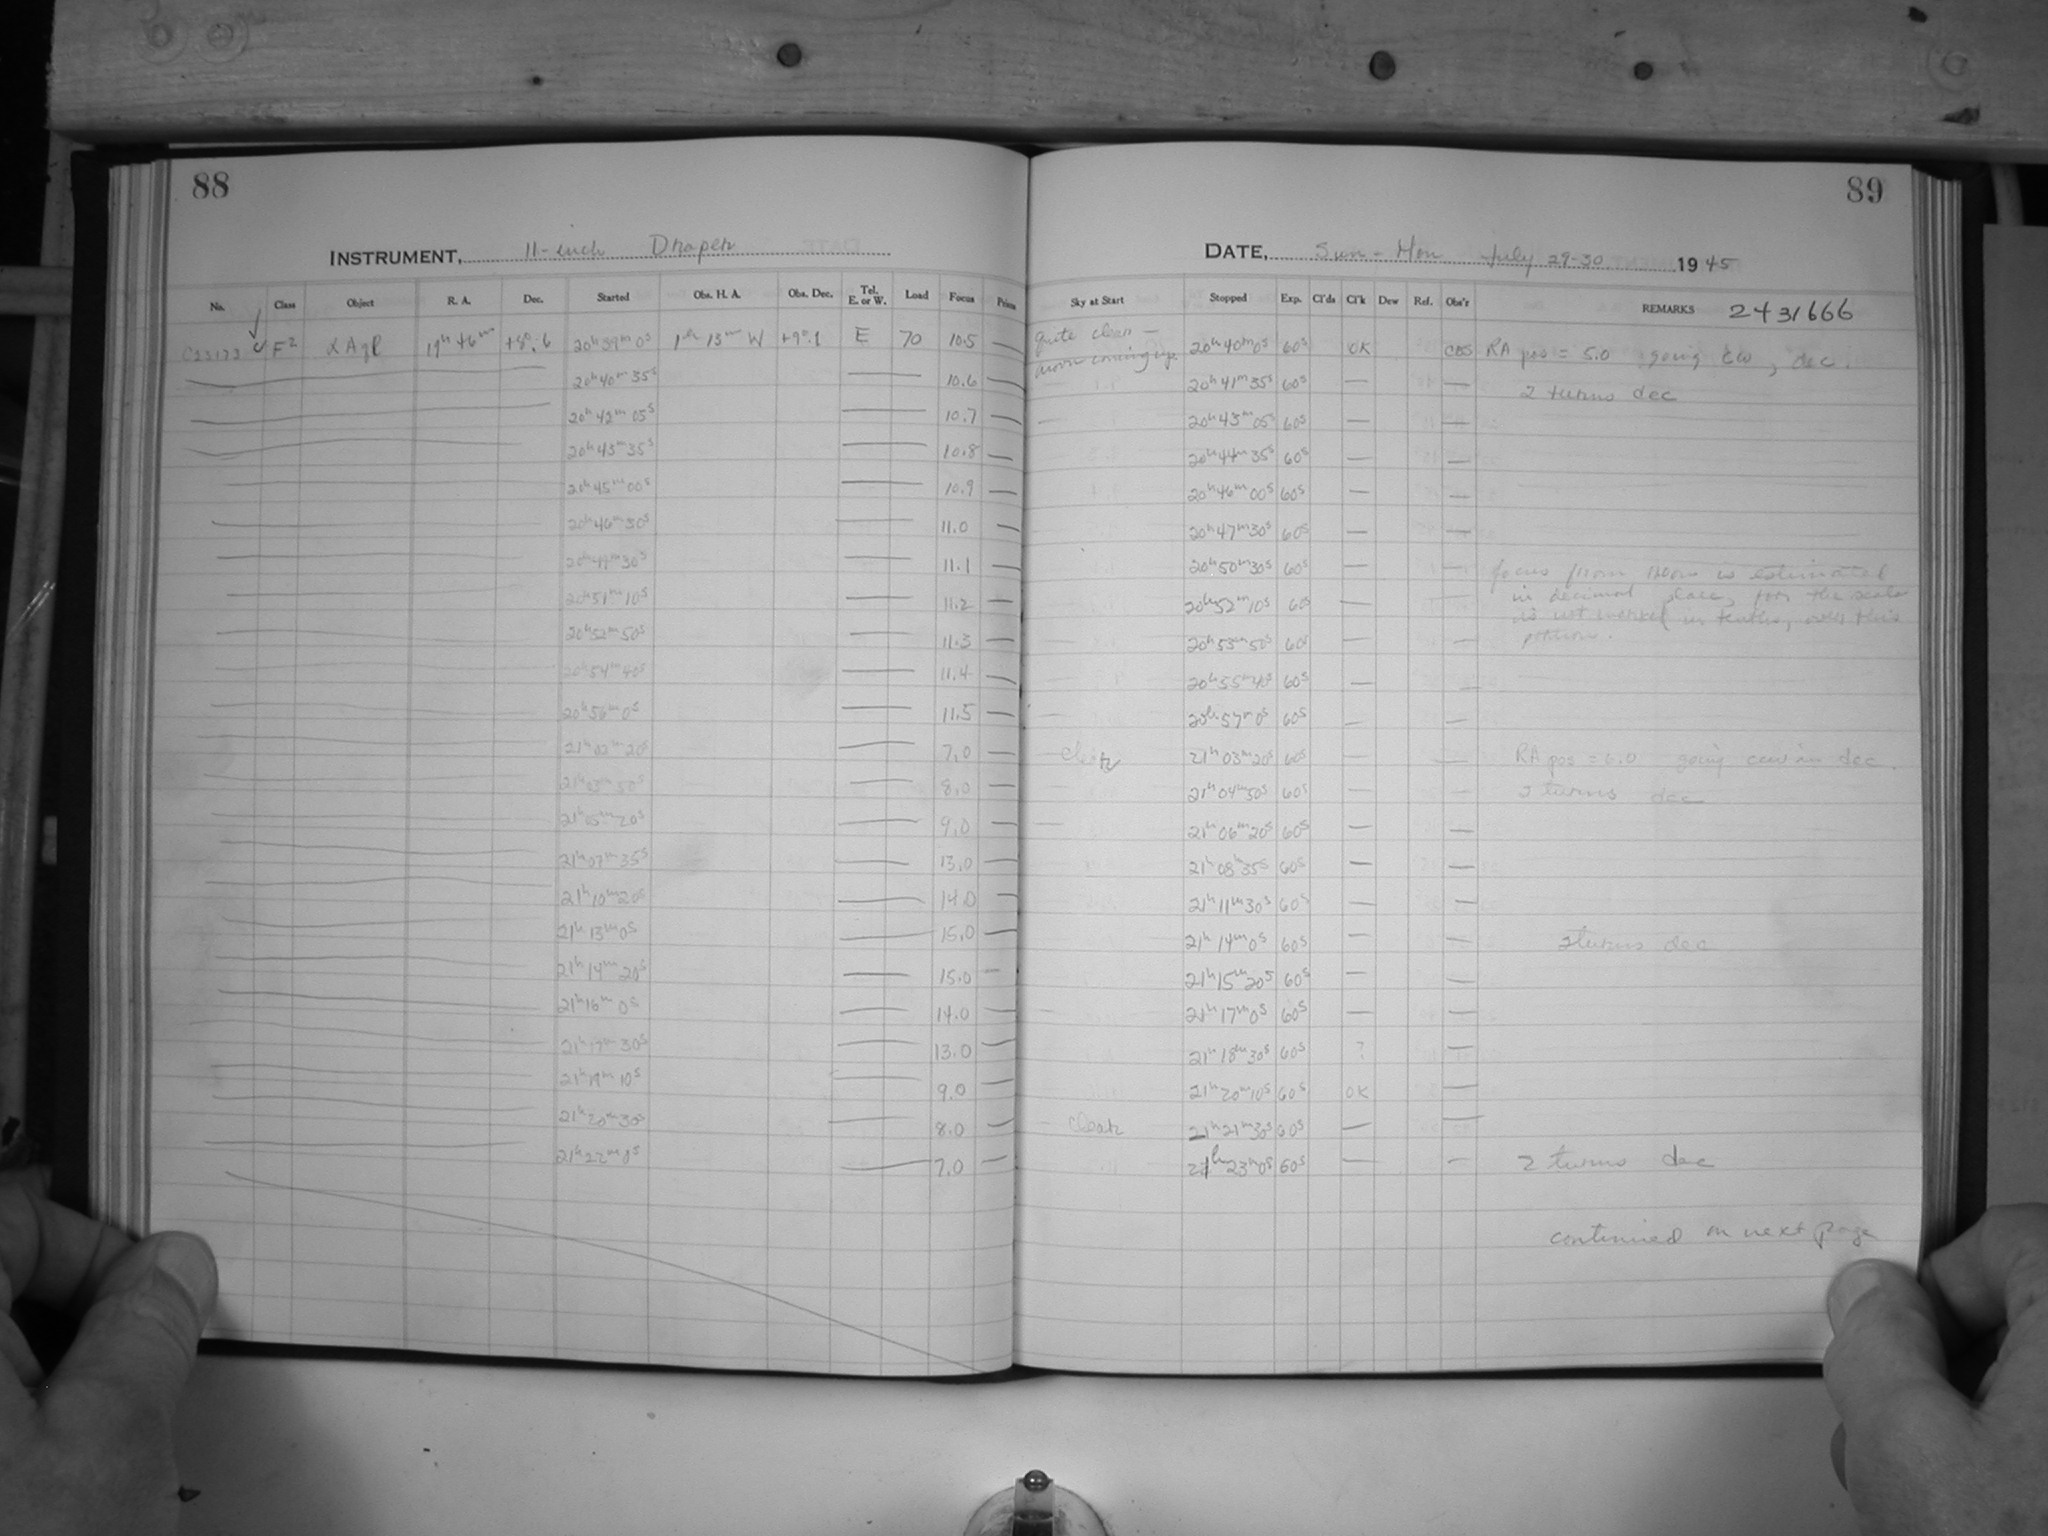 88
INSTRUMENT, 11-inch Draper
No. Class Object R. A. Dec. Started Obs. H. A. Obs. Dec. Tel. E. or W. Load Focus Prism
F2 αAql 19h 46m +8°.6 20h 39m 0s 1h 13m W +9°.1 E 70 10.5 —
20h 40m 35s — 10.6 —
20h 42m 05s — 10.7 —
20h 43m 35s — 10.8 —
20h 45m 00s — 10.9 —
20h 46m 30s — 11.0 —
20h 49m 30s — 11.1 —
20h 51m 10s — 11.2 —
20h 52m 50s — 11.3 —
20h 54m 40s — 11.4 —
20h 56m 0s — 11.5 —
21h 02m 20s — 7.0 —
21h 03m 50s — 8.0 —
21h 05m 20s — 9.0 —
21h 07m 35s — 13.0 —
21h 10m 20s — 14.0 —
21h 13m 0s — 15.0 —
21h 14m 20s — 15.0 —
21h 16m 0s — 14.0 —
21h 17m 30s — 13.0 —
21h 19m 10s — 9.0 —
21h 20m 30s — 8.0 —
21h 22m 0s — 7.0 —
89
DATE, Sun - Mon July 29-30 1945
Sky at Start Stopped Exp. Cl'ds Cl'k Dew Ref. Obs'r REMARKS 2431666
quite clear —
moon coming up 20h 40m 0s 60s OK RA pos = 5.0 going cw, dec.
20h 41m 35s 60s — — 2 turns dec
20h 43m 05s 60s — —
20h 44m 35s 60s — —
20h 46m 00s 60s — —
20h 47m 30s 60s — —
20h 50m 30s 60s — — focus from here is estimated
20h 52m 10s 60s — — in decimal place, for the scale
is not marked in tenths, over this
20h 53m 50s 60s — — portion.
20h 55m 40s 60s — —
20h 57m 0s 60s — —
clear 21h 03m 20s 60s — — RA pos = 6.0 going ccw in dec.
21h 04m 50s 60s — — 2 turns dec
21h 06m 20s 60s — —
21h 08h 35s 60s — —
21h 11m 30s 60s — —
21h 14m 0s 60s — — 2 turns dec
21h 15m 20s 60s — —
21h 17m 0s 60s — —
21h 18m 30s 60s ? —
21h 20m 10s 60s OK —
clear 21h 21m 30s 60s — —
21h 23m 0s 60s — — 2 turns dec
continued on next page